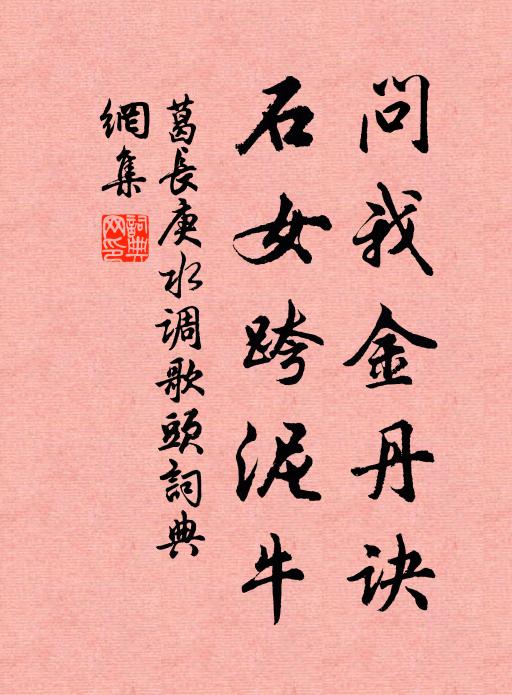 问我金丹诀
石女跨泥牛
葛長庚水调歌頭詞典
網集
詞典
网印